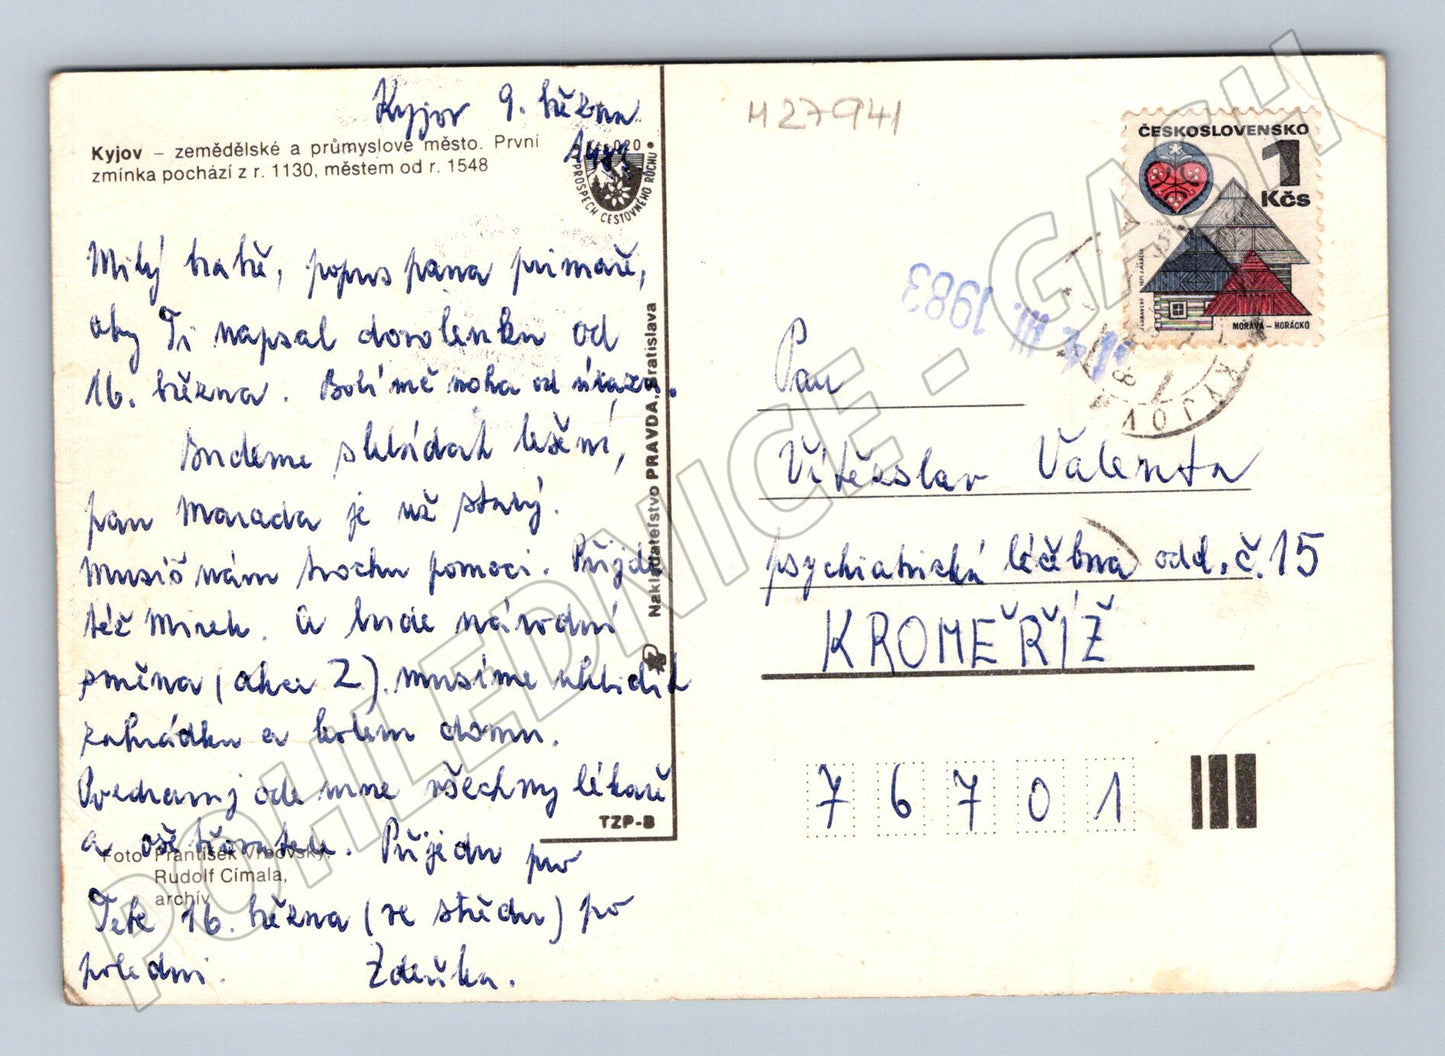 Kyjov 9. března
1983
Kyjov – zemědělské a průmyslové město. První
zmínka pochází z r. 1130, městem od r. 1548
Kčs 0,20
PROSPECH CESTOVNÉHO RUCHU
Milý bratře, popros pana primáře,
aby Ti napsal dovolenku od
16. března. Bolí mě noha od úrazu.
Budeme skládat lešení,
pan Marada je už starý.
Musíš nám trochu pomoci. Přijde
též Mirek. A bude národní
směna (akce Z). musíme uklidit
zahrádku a kolem domu.
Pozdravuj ode mne všechny lékaře
a ošetřovatele. Přijedu pro
Tebe 16. března (ve středu) po
poledni. Zdeňka.
Foto František Vrbovský,
Rudolf Címala,
archív
Nakladateľstvo PRAVDA, Bratislava
TZP-B
H27941
ČESKOSLOVENSKO
1
Kčs
MORAVA – HORÁCKO
III. 1983
KYJOV
Pan
Vítězslav Valenta
psychiatrická léčebna odd. č. 15
KROMĚŘÍŽ
7 6 7 0 1
POHLEDNICE - GASH